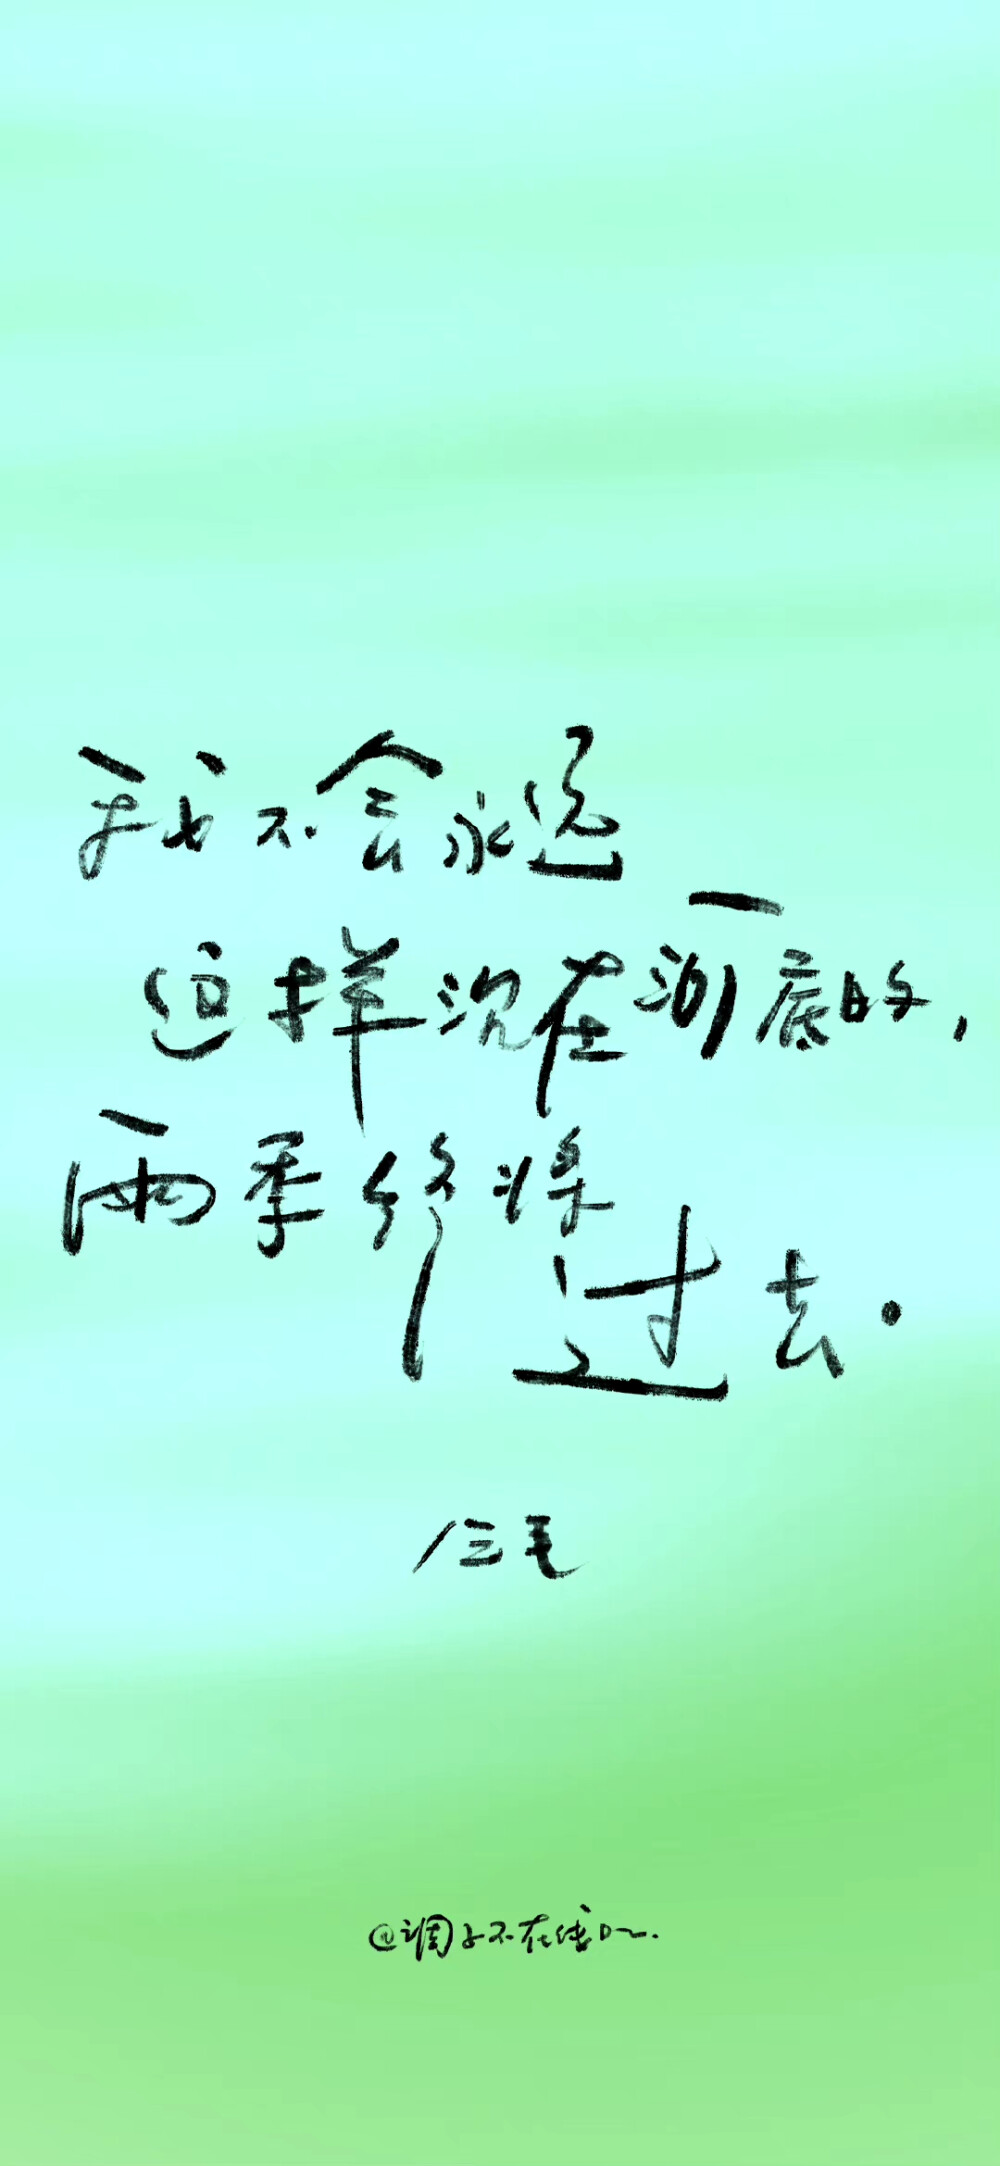 我不会永远
这样沉在河底的，
雨季终将过去.
/三毛
@调子不在线